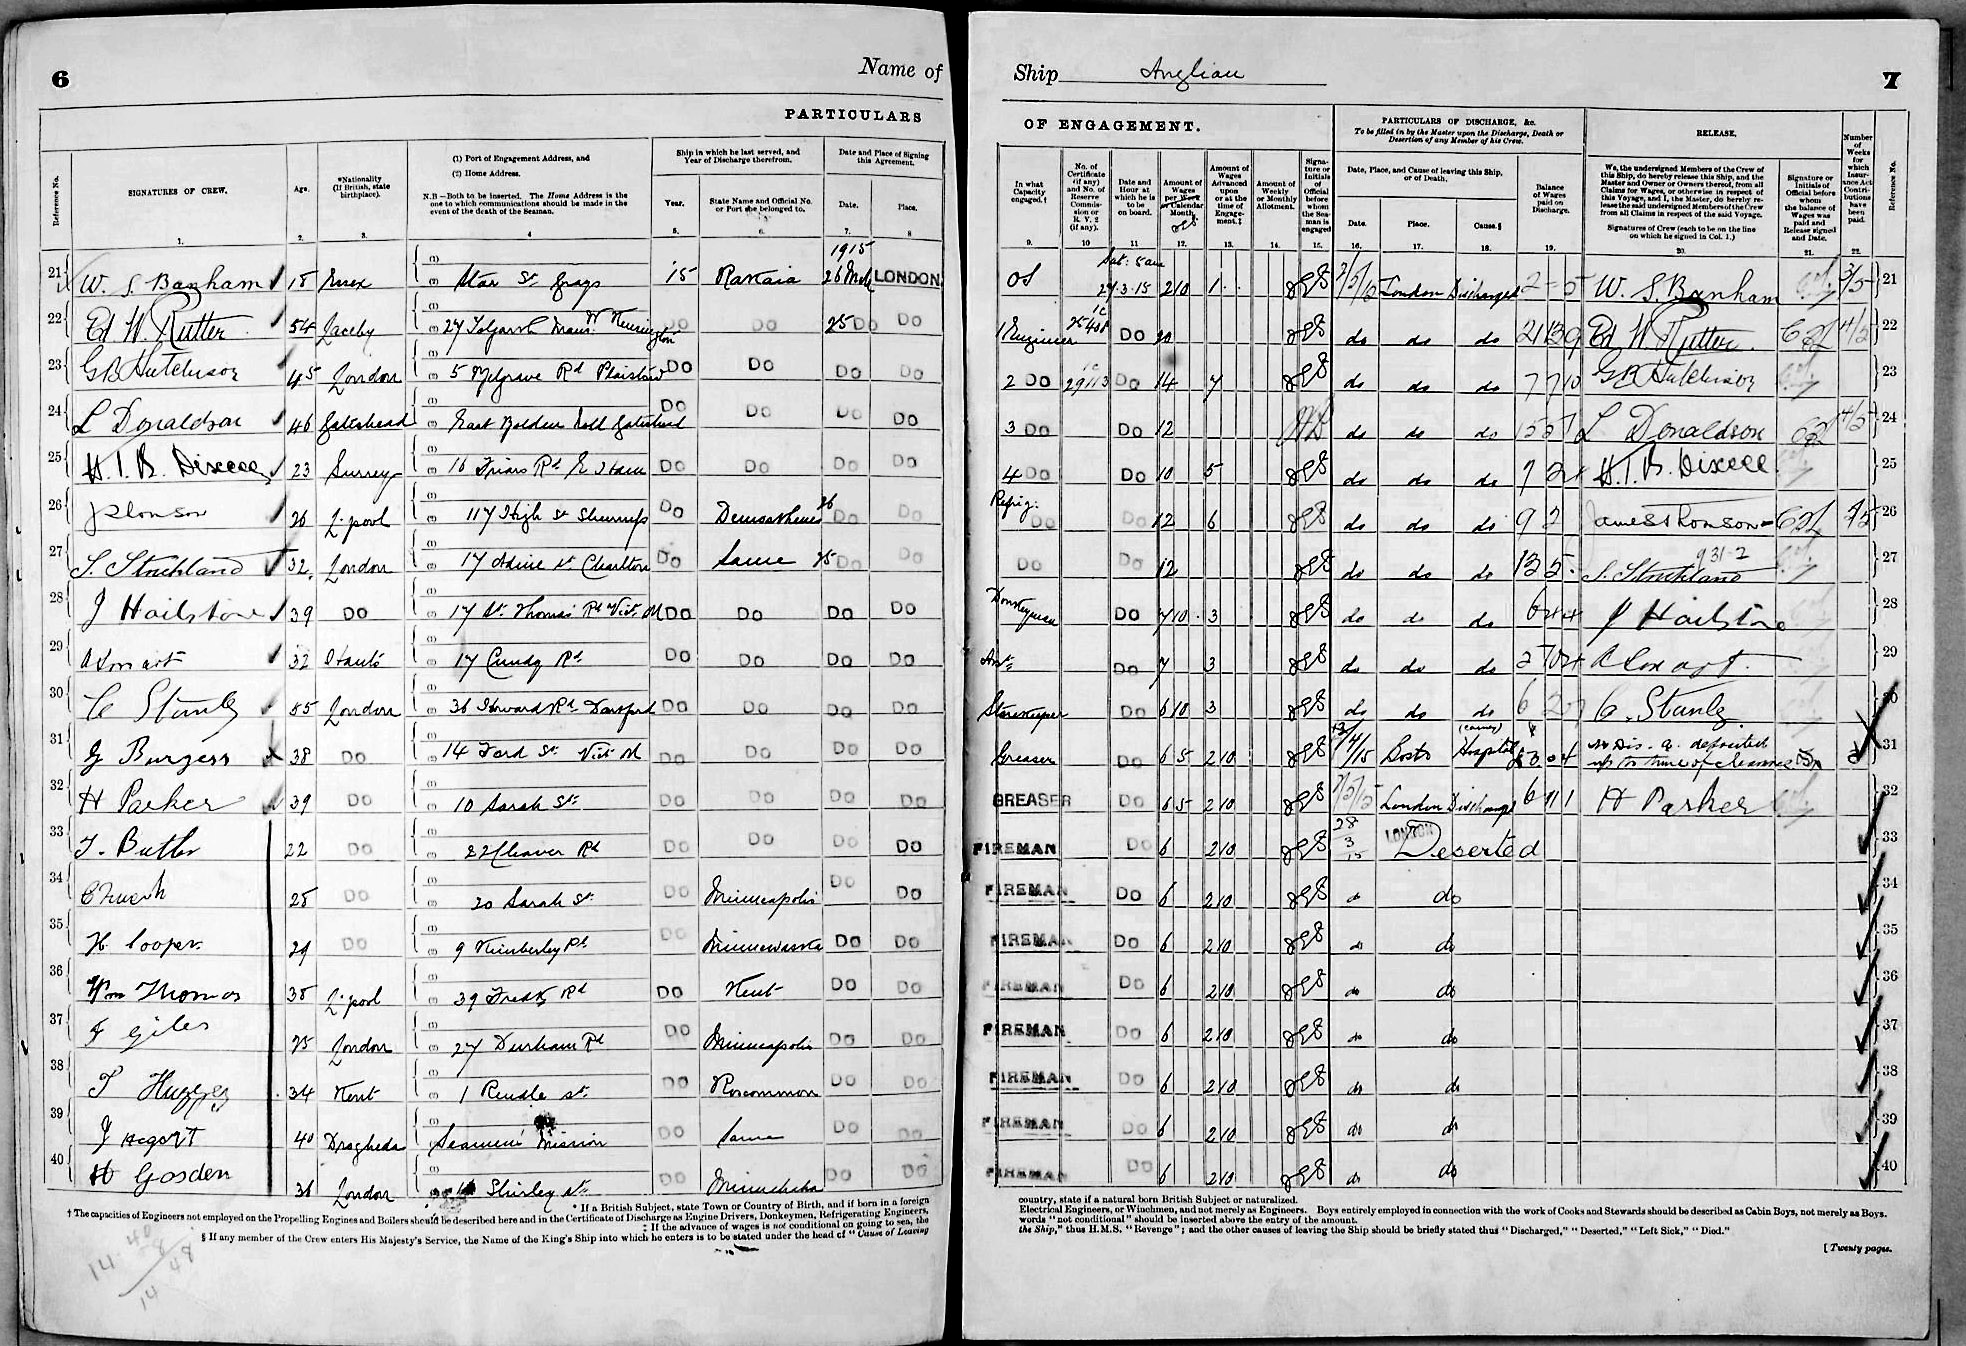 6
Name of
PARTICULARS
Reference No.
SIGNATURES OF CREW.
Age.
*Nationality (If British, state birthplace).
(1) Port of Engagement Address, and
(2) Home Address.
N.B.—Both to be inserted. The Home Address is the one to which communications should be made in the event of the death of the Seaman.
Ship in which he last served, and Year of Discharge therefrom.
Year.
State Name and Official No. or Port she belonged to.
Date and Place of Signing this Agreement.
Date.
Place.
1. 2. 3. 4 5. 6. 7. 8
1915
21 W. S. Banham 18 Essex Star St Grays 15 26 Mch LONDON
22 Ed W. Rutter 54 Laceby 27 Mans. W Kensington Do Do 25 Do Do
23 G B Hutchison 45 London 5 Rd Plaistow Do Do Do Do
24 L Donaldson 46 Gateshead East Gateshead Do Do Do Do
25 23 Surrey 16 Friars Rd E Ham Do Do Do Do
26 26 L'pool 117 High St Demosthenes 26 Do Do
27 S. Strickland 32 London 17 St Charlton Do Same 25 Do Do
28 J Hailstone 39 Do 17 St Thomas Rd Vict. Do Do Do Do
29 32 17 Cundy Rd Do Do Do Do
30 C Stanley London 36 Howard Rd Dartford Do Do Do Do
31 G Burgess 38 Do 14 Ford St Do Do Do Do
32 H Parker 39 Do 10 Sarah St. Do Do Do Do
33 T. Butler 22 Do Cleaver Rd Do Do Do Do
34 28 Do 20 Sarah St Do Minneapolis Do Do
35 H. Cooper 29 Do 9 Kimberley Rd Do Minnewaska Do Do
36 Wm Thomas 38 L'pool 39 Rd Do Kent Do Do
37 F Giles 25 London 27 Durham Rd Do Minneapolis Do Do
38 T 34 Kent 1 Rendle St. Do Roscommon Do Do
39 J 40 Drogheda Seamens Mission Do Same Do Do
40 H Gosden 36 London Shirley St. Do Minnehaha Do Do
* If a British Subject, state Town or Country of Birth, and if born in a foreign
† The capacities of Engineers not employed on the Propelling Engines and Boilers should be described here and in the Certificate of Discharge as Engine Drivers, Donkeymen, Refrigerating Engineers,
‡ If the advance of wages is not conditional on going to sea, the
§ If any member of the Crew enters His Majesty's Service, the Name of the King's Ship into which he enters is to be stated under the head of "Cause of Leaving
14 40
8
14 48
Ship Anglian
7
OF ENGAGEMENT.
PARTICULARS OF DISCHARGE, &c.
To be filled in by the Master upon the Discharge, Death or Desertion of any Member of his Crew.
RELEASE.
Number of Weeks for which Insurance Act Contributions have been paid.
Reference No.
In what Capacity engaged.†
No. of Certificate (if any) and No. of Reserve Commission or R. V. 2 (if any).
Date and Hour at which he is to be on board.
Amount of Wages per Week or Calendar Month.
Amount of Wages Advanced upon or at the time of Engagement.‡
Amount of Weekly or Monthly Allotment.
Signature or Initials of Official before whom the Seaman is engaged
Date, Place, and Cause of leaving this Ship, or of Death.
Date.
Place.
Cause.§
Balance of Wages paid on Discharge.
We, the undersigned Members of the Crew of this Ship, do hereby release this Ship, and the Master and Owner or Owners thereof, from all Claims for Wages, or otherwise in respect of this Voyage, and I, the Master, do hereby release the said undersigned Members of the Crew from all Claims in respect of the said Voyage.
Signatures of Crew (each to be on the line on which he signed in Col. 1.)
Signature or Initials of Official before whom the balance of Wages was paid and Release signed and Date.
9. 10 11 12. 13. 14. 15. 16. 17. 18. 19. 20. 21. 22.
OS Sat: 5 am 27.3.15 2 10 1 London Discharged 2 - 5 W. S. Banham 21
1 Engineer 1c Do 20 do do do 21 13 9 Ed W. Rutter 22
2 Do 1c 29113 Do 14 7 do do do 7 7 10 G B Hutchison 23
3 Do Do 12 do do do L Donaldson 24
4 Do Do 10 5 do do do 25
Refrig: Do Do 12 6 do do do 9 2 James Thomson 26
Do Do 12 do do do 13 5 931-2 S. Strickland 27
Donkeyman Do 7 10 3 do do do J Hailstone 28
Do 7 3 do do do 29
Storekeeper Do 6 10 3 do do do C. Stanley 30
Greaser Do 6 5 2 10 Hospital Dis. a. deposited time of clearance 31
GREASER Do 6 5 2 10 London Discharged 6 11 1 H Parker 32
FIREMAN Do 6 2 10 28 3 15 LONDON Deserted 33
FIREMAN Do 6 2 10 do do 34
FIREMAN Do 6 2 10 do do 35
FIREMAN Do 6 2 10 do do 36
FIREMAN Do 6 2 10 do do 37
FIREMAN Do 6 2 10 do do 38
FIREMAN Do 6 2 10 do do 39
FIREMAN Do 6 2 10 do do 40
country, state if a natural born British Subject or naturalized.
Electrical Engineers, or Winchmen, and not merely as Engineers. Boys entirely employed in connection with the work of Cooks and Stewards should be described as Cabin Boys, not merely as Boys.
words "not conditional" should be inserted above the entry of the amount.
the Ship," thus H.M.S. "Revenge"; and the other causes of leaving the Ship should be briefly stated thus "Discharged," "Deserted," "Left Sick," "Died."
[Twenty pages.